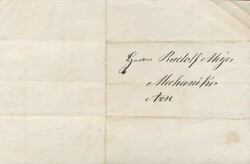 Herrn Rudolf Meyer
Mechaniker